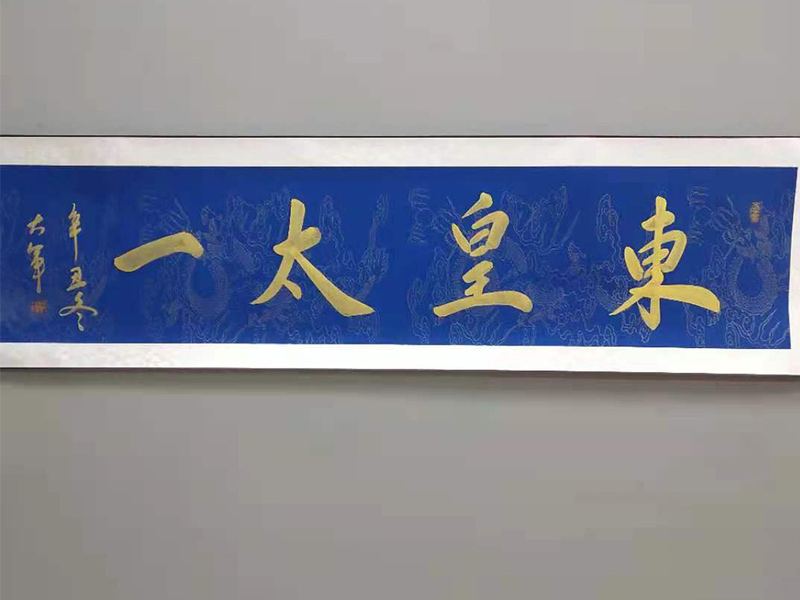 東皇太一
辛丑冬
大軍